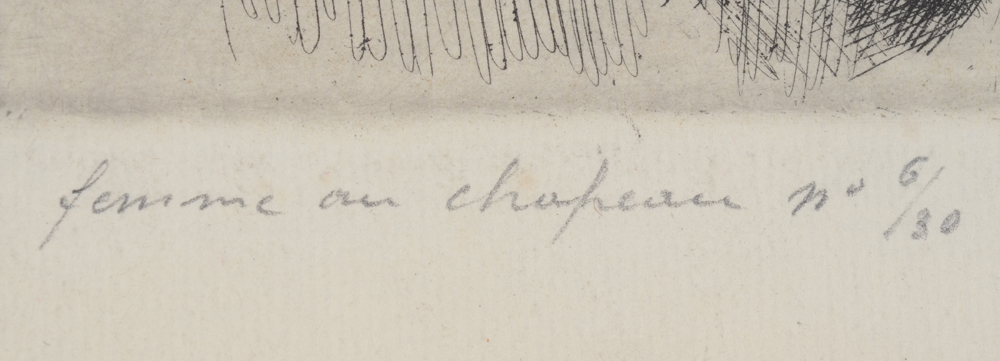 femme au chapeau nº 6/30